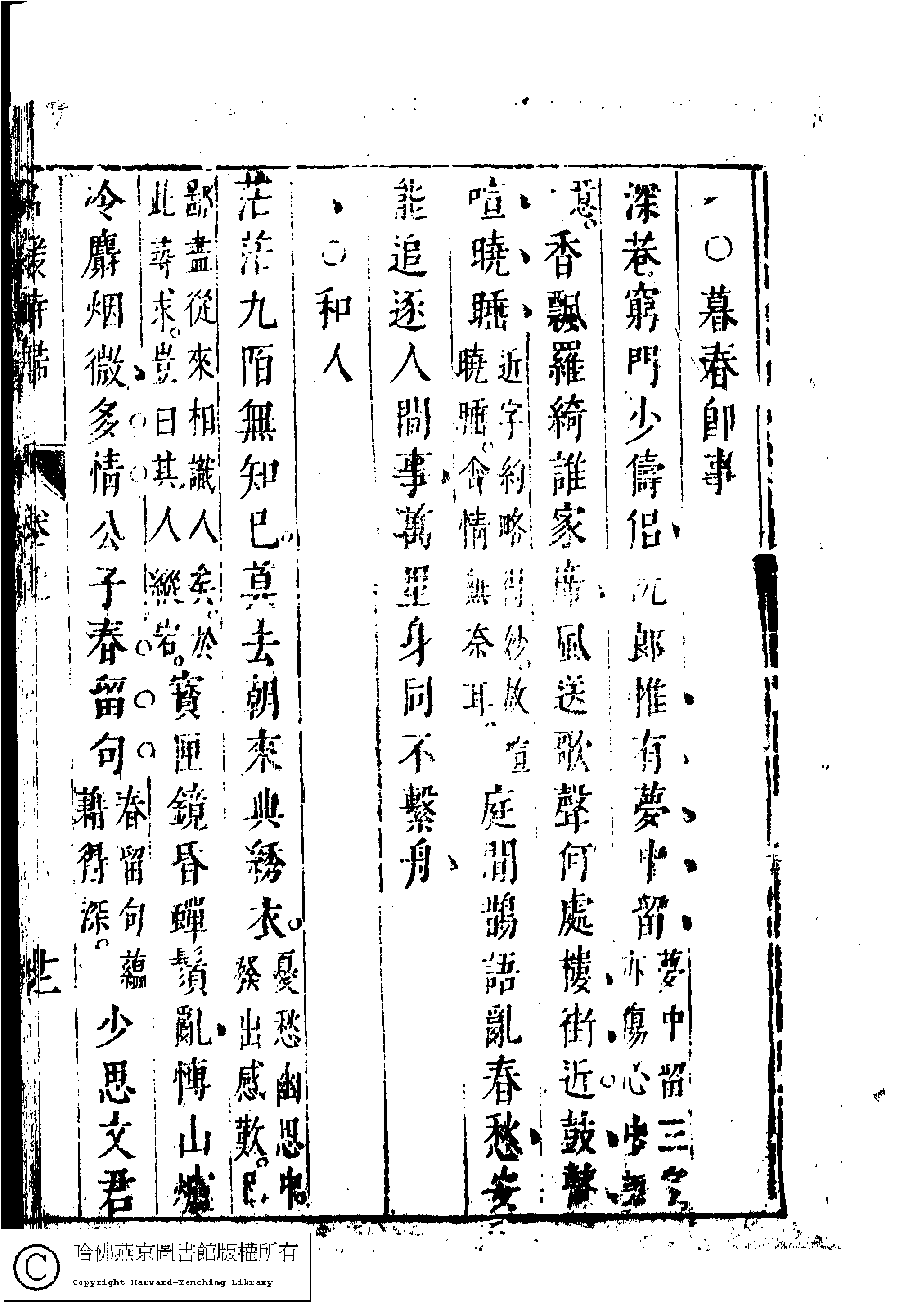 ○暮春即事
深巷窮門少儔侶阮郎惟有夢中留夢中留三字亦傷心
意。香飄羅綺誰家席風送歌聲何處樓街近鼓聲
喧曉睡近字約略得妙。故喧曉睡。命情無奈耳。庭閒鵲語亂春愁安
能追逐人間事萬里身同不繫舟
○和人
茫茫九陌無知已。莫去朝來典綉衣。憂愁幽思中發出感歎。已
鄙盡從來相識人矣。於此尋求。豈曰其人縱若。寶匣鏡昏蟬鬢亂愽山爐
冷麝烟微多情公子春留句春留句蘊藉得深。少思文君
名媛詩歸
哈佛燕京圖書館版權所有
Copyright Harvard-Yenching Library